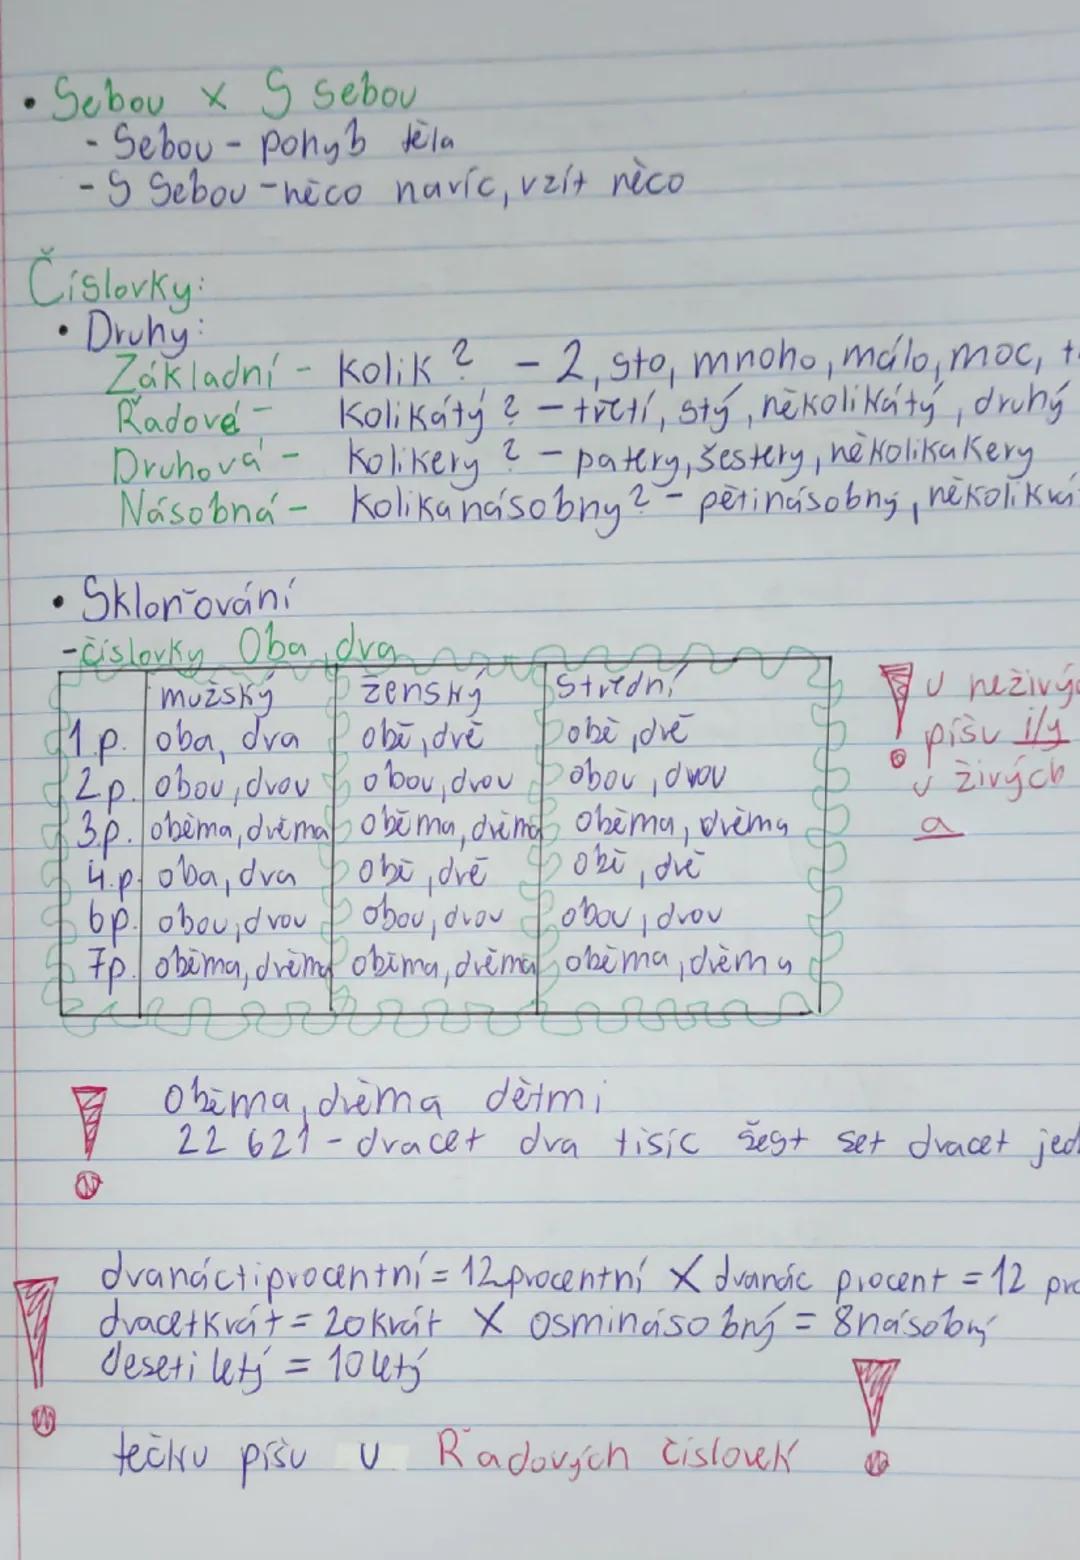 • Sebou x S sebou
- Sebou - pohyb těla
- S Sebou - něco navíc, vzít něco
Číslovky:
• Druhy:
Základní - Kolik? - 2, sto, mnoho, málo, moc,
Řadové - Kolikátý? - třetí, stý, několikátý, druhý
Druhová - Kolikery? - patery, šestery, několikakery
Násobná - Kolikanásobny? - pětinásobný,
• Skloňování
- číslovky Oba, dva
mužský ženský střední
1.p. oba, dva obě, dvě obě, dvě
2p. obou, dvou obou, dvou obou, dvou
3.p. oběma, dvěma oběma, dvěma oběma, dvěma
4.p. oba, dva obě, dvě obě, dvě
6p. obou, dvou obou, dvou obou, dvou
7p. oběma, dvěma oběma, dvěma oběma, dvěma
! u
píšu i/y
u živých
a
! Oběma, dvěma dětmi
22 621 - dvacet dva tisíc šest set dvacet
! dvanáctiprocentní = 12procentní X dvanác procent = 12
dvacetkrát = 20krát X osminásobný = 8násobný
desetiletý = 10letý
tečku píšu u Řadových číslovek !